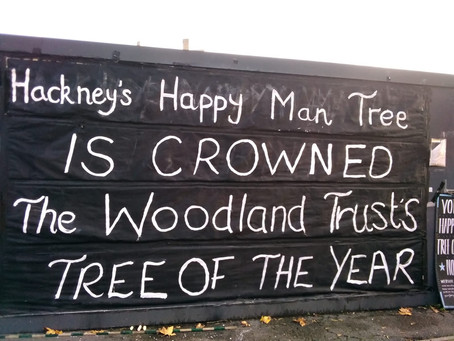 Hackney's Happy Man Tree
IS CROWNED
The Woodland Trust's
TREE OF THE YEAR